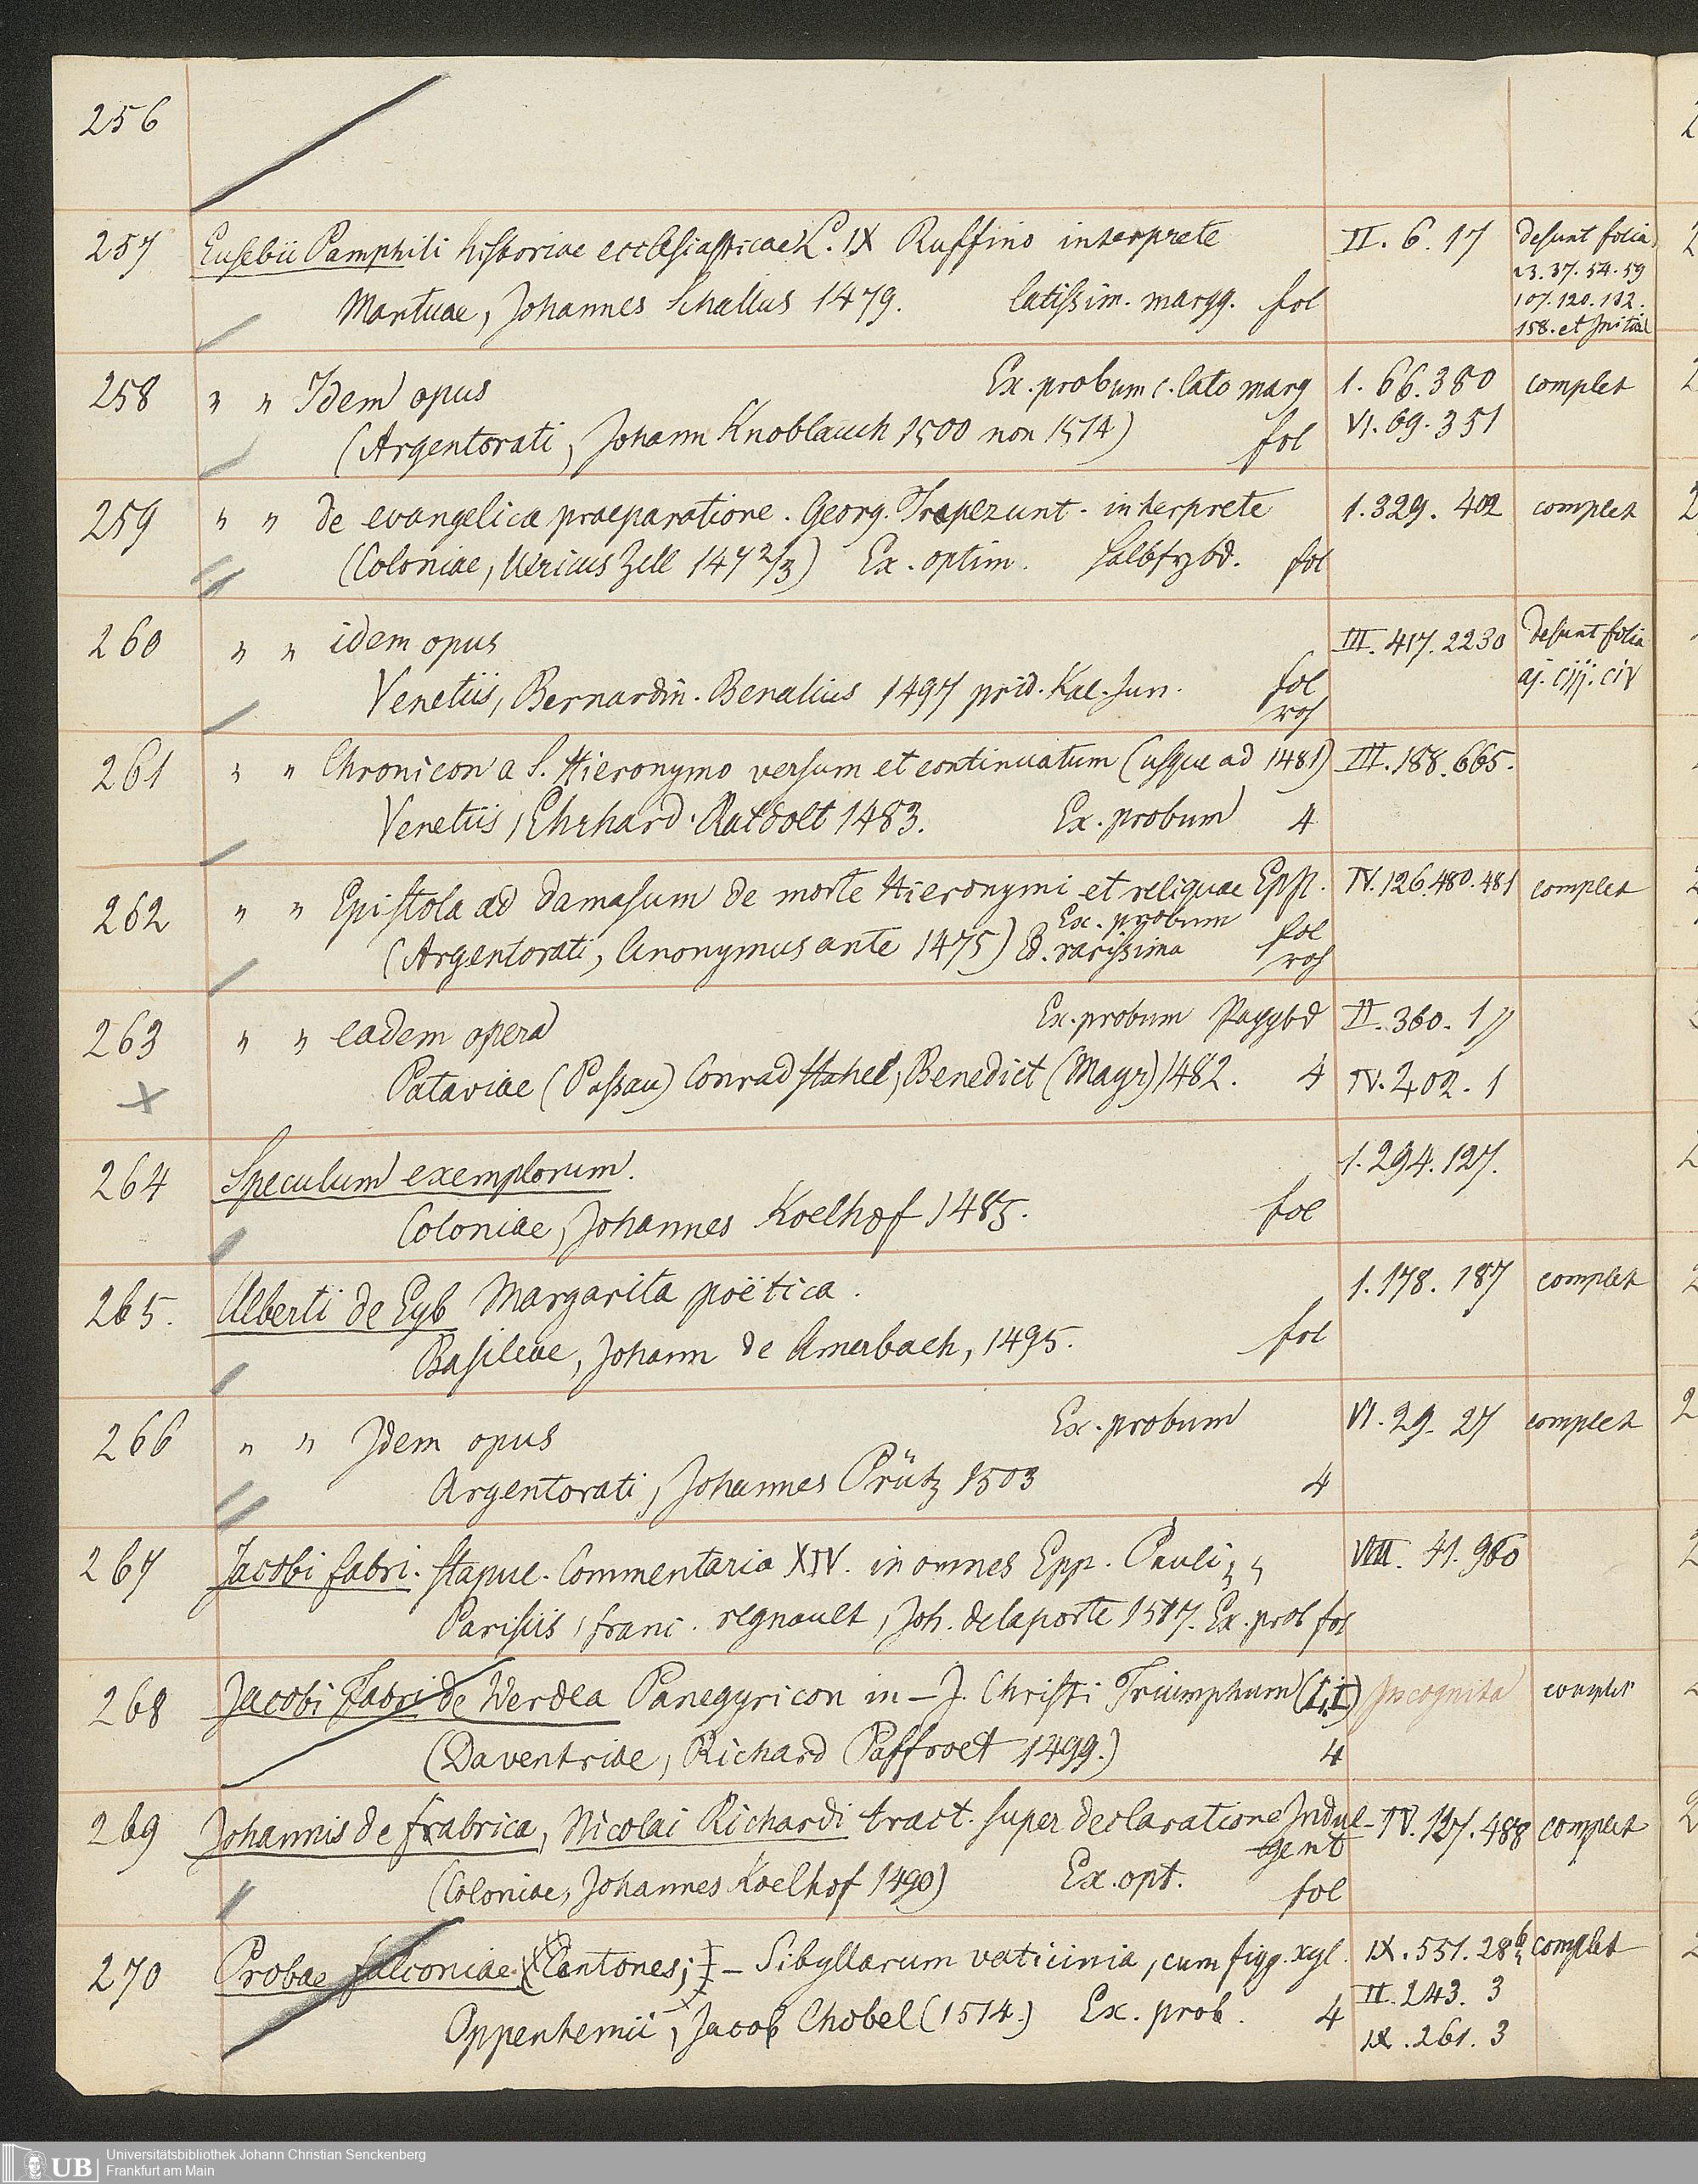 256
257 Eusebii Pamphili historiae ecclesiasticae L. IX Ruffino interprete II. 6. 17 desunt folia
23. 37. 54. 59
Mantuae, Johannes Schallus 1479. latissim. margg. fol 107. 120. 132.
158. et Initial
258 " " Idem opus Ex. probum c. lato marg 1. 66. 380 complet
(Argentorati, Johann Knoblauch 1500 non 1514) fol VI. 69. 351
259 " " de evangelica praeparatione. Georg. Trapezunt. interprete 1. 329. 402 complet
(Coloniae, Ulricus Zell 1472/3) Ex. optim. Halbfrzbd. fol
260 " " idem opus III. 417. 2230 Desunt folia
Venetiis, Bernardin. Benalius 1497 prid. Kal. Jun. fol aj. ciij. civ
roh
261 " " Chronicon a S. Hieronymo versum et continuatum (usque ad 1481) III. 188. 665.
Venetiis, Ehrhard. Ratdolt 1483. Ex. probum 4
262 " " Epistola ad Damasum de morte Hieronymi et reliquae Epp. IV. 126. 480. 481 complet
Ex. probum
(Argentorati, Anonymus ante 1475) Ed. rarissima fol
roh
263 " " eadem opera Ex. probum Pappbd II. 360. 17
Pataviae (Passau) Conrad Stahel, Benedict (Mayr) 1482. 4 IV. 402. 1
264 Speculum exemplorum. 1. 294. 127.
Coloniae, Johannes Koelhof 1485. fol
265. Alberti de Eyb Margarita poëtica. 1. 178. 187 complet
Basileae, Johann de Amerbach, 1495. fol
266 " " Idem opus Ex. probum VI. 29. 27 complet
Argentorati, Johannes Prütz 1503 4
267 Jacobi fabri. Stapul. Commentaria XIV. in omnes Epp. Pauli VIII. 41. 960
Parisiis, franc. regnault, Joh. delaporte 1517. Ex. prob fol
268 Jacobi Fabri de Werdea Panegyricon in – J. Christi Triumphum Incognita complet
(Daventriae, Richard Paffroet 1499.) 4
269 Johannis de frabrica, Nicolai Richardi tract. super declaratione Indul- IV. 127. 488 complet
gent
(Coloniae, Johannes Koelhof 1490) Ex. opt. fol
270 Probae falconiae (Centones;) – Sibyllarum vaticinia, cum figg. xyl. IX. 551. 28b complet
II. 243. 3
Oppenhemii, Jacob Chobel (1514.) Ex. prob. 4
IX. 261. 3
UB Universitätsbibliothek Johann Christian Senckenberg
Frankfurt am Main